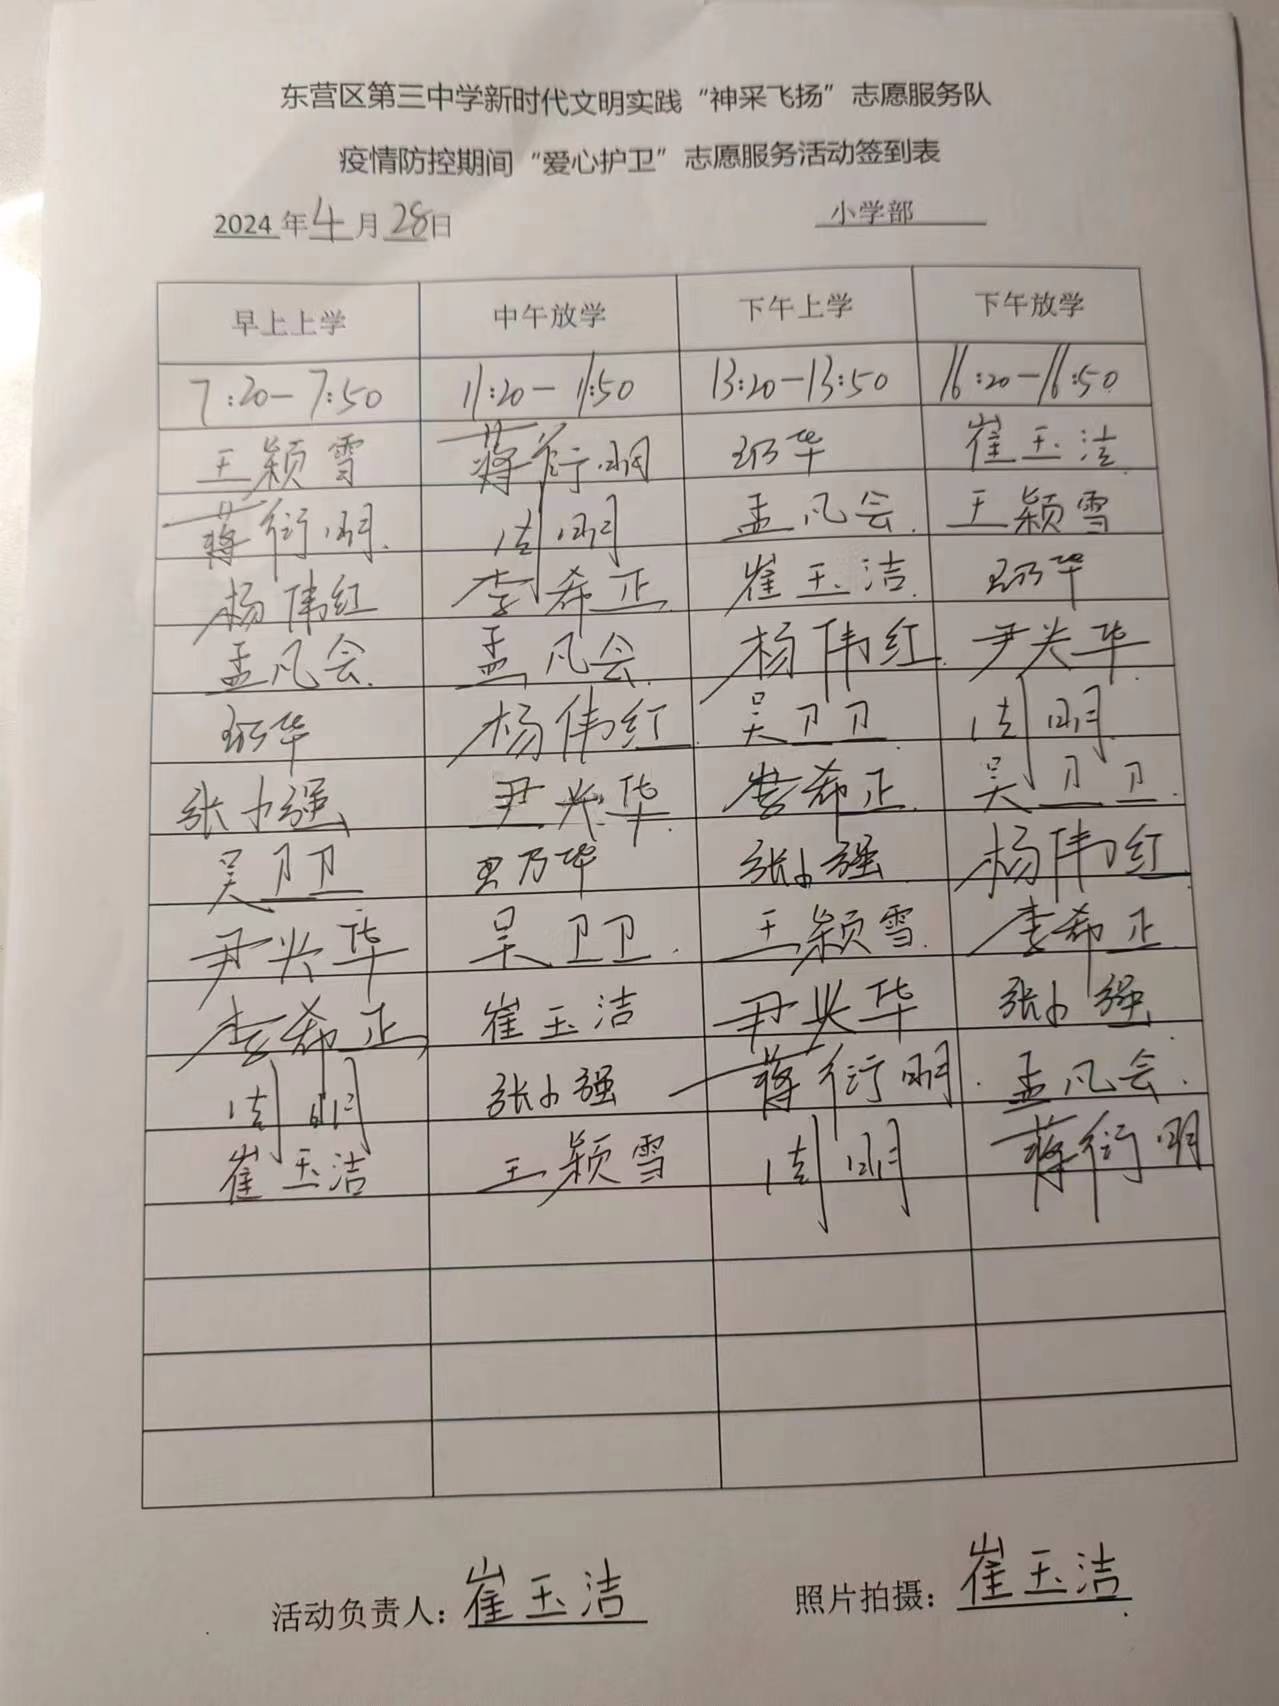 东营区第三中学新时代文明实践“神采飞扬”志愿服务队
疫情防控期间“爱心护卫”志愿服务活动签到表
2024年4月28日 小学部
早上上学 中午放学 下午上学 下午放学
7:20-7:50 11:20-11:50 13:20-13:50 16:20-16:50
王颖雪 蒋衍明 华 崔玉洁
蒋衍明 周明 孟凡会 王颖雪
杨伟红 李希正 崔玉洁 华
孟凡会 孟凡会 杨伟红 尹兴华
华 杨伟红 吴卫卫 周明
张小强 尹兴华 李希正 吴卫卫
吴卫卫 乃华 张小强 杨伟红
尹兴华 吴卫卫 王颖雪 李希正
李希正 崔玉洁 尹兴华 张小强
周明 张小强 蒋衍明 孟凡会
崔玉洁 王颖雪 周明 蒋衍明
活动负责人：崔玉洁 照片拍摄：崔玉洁